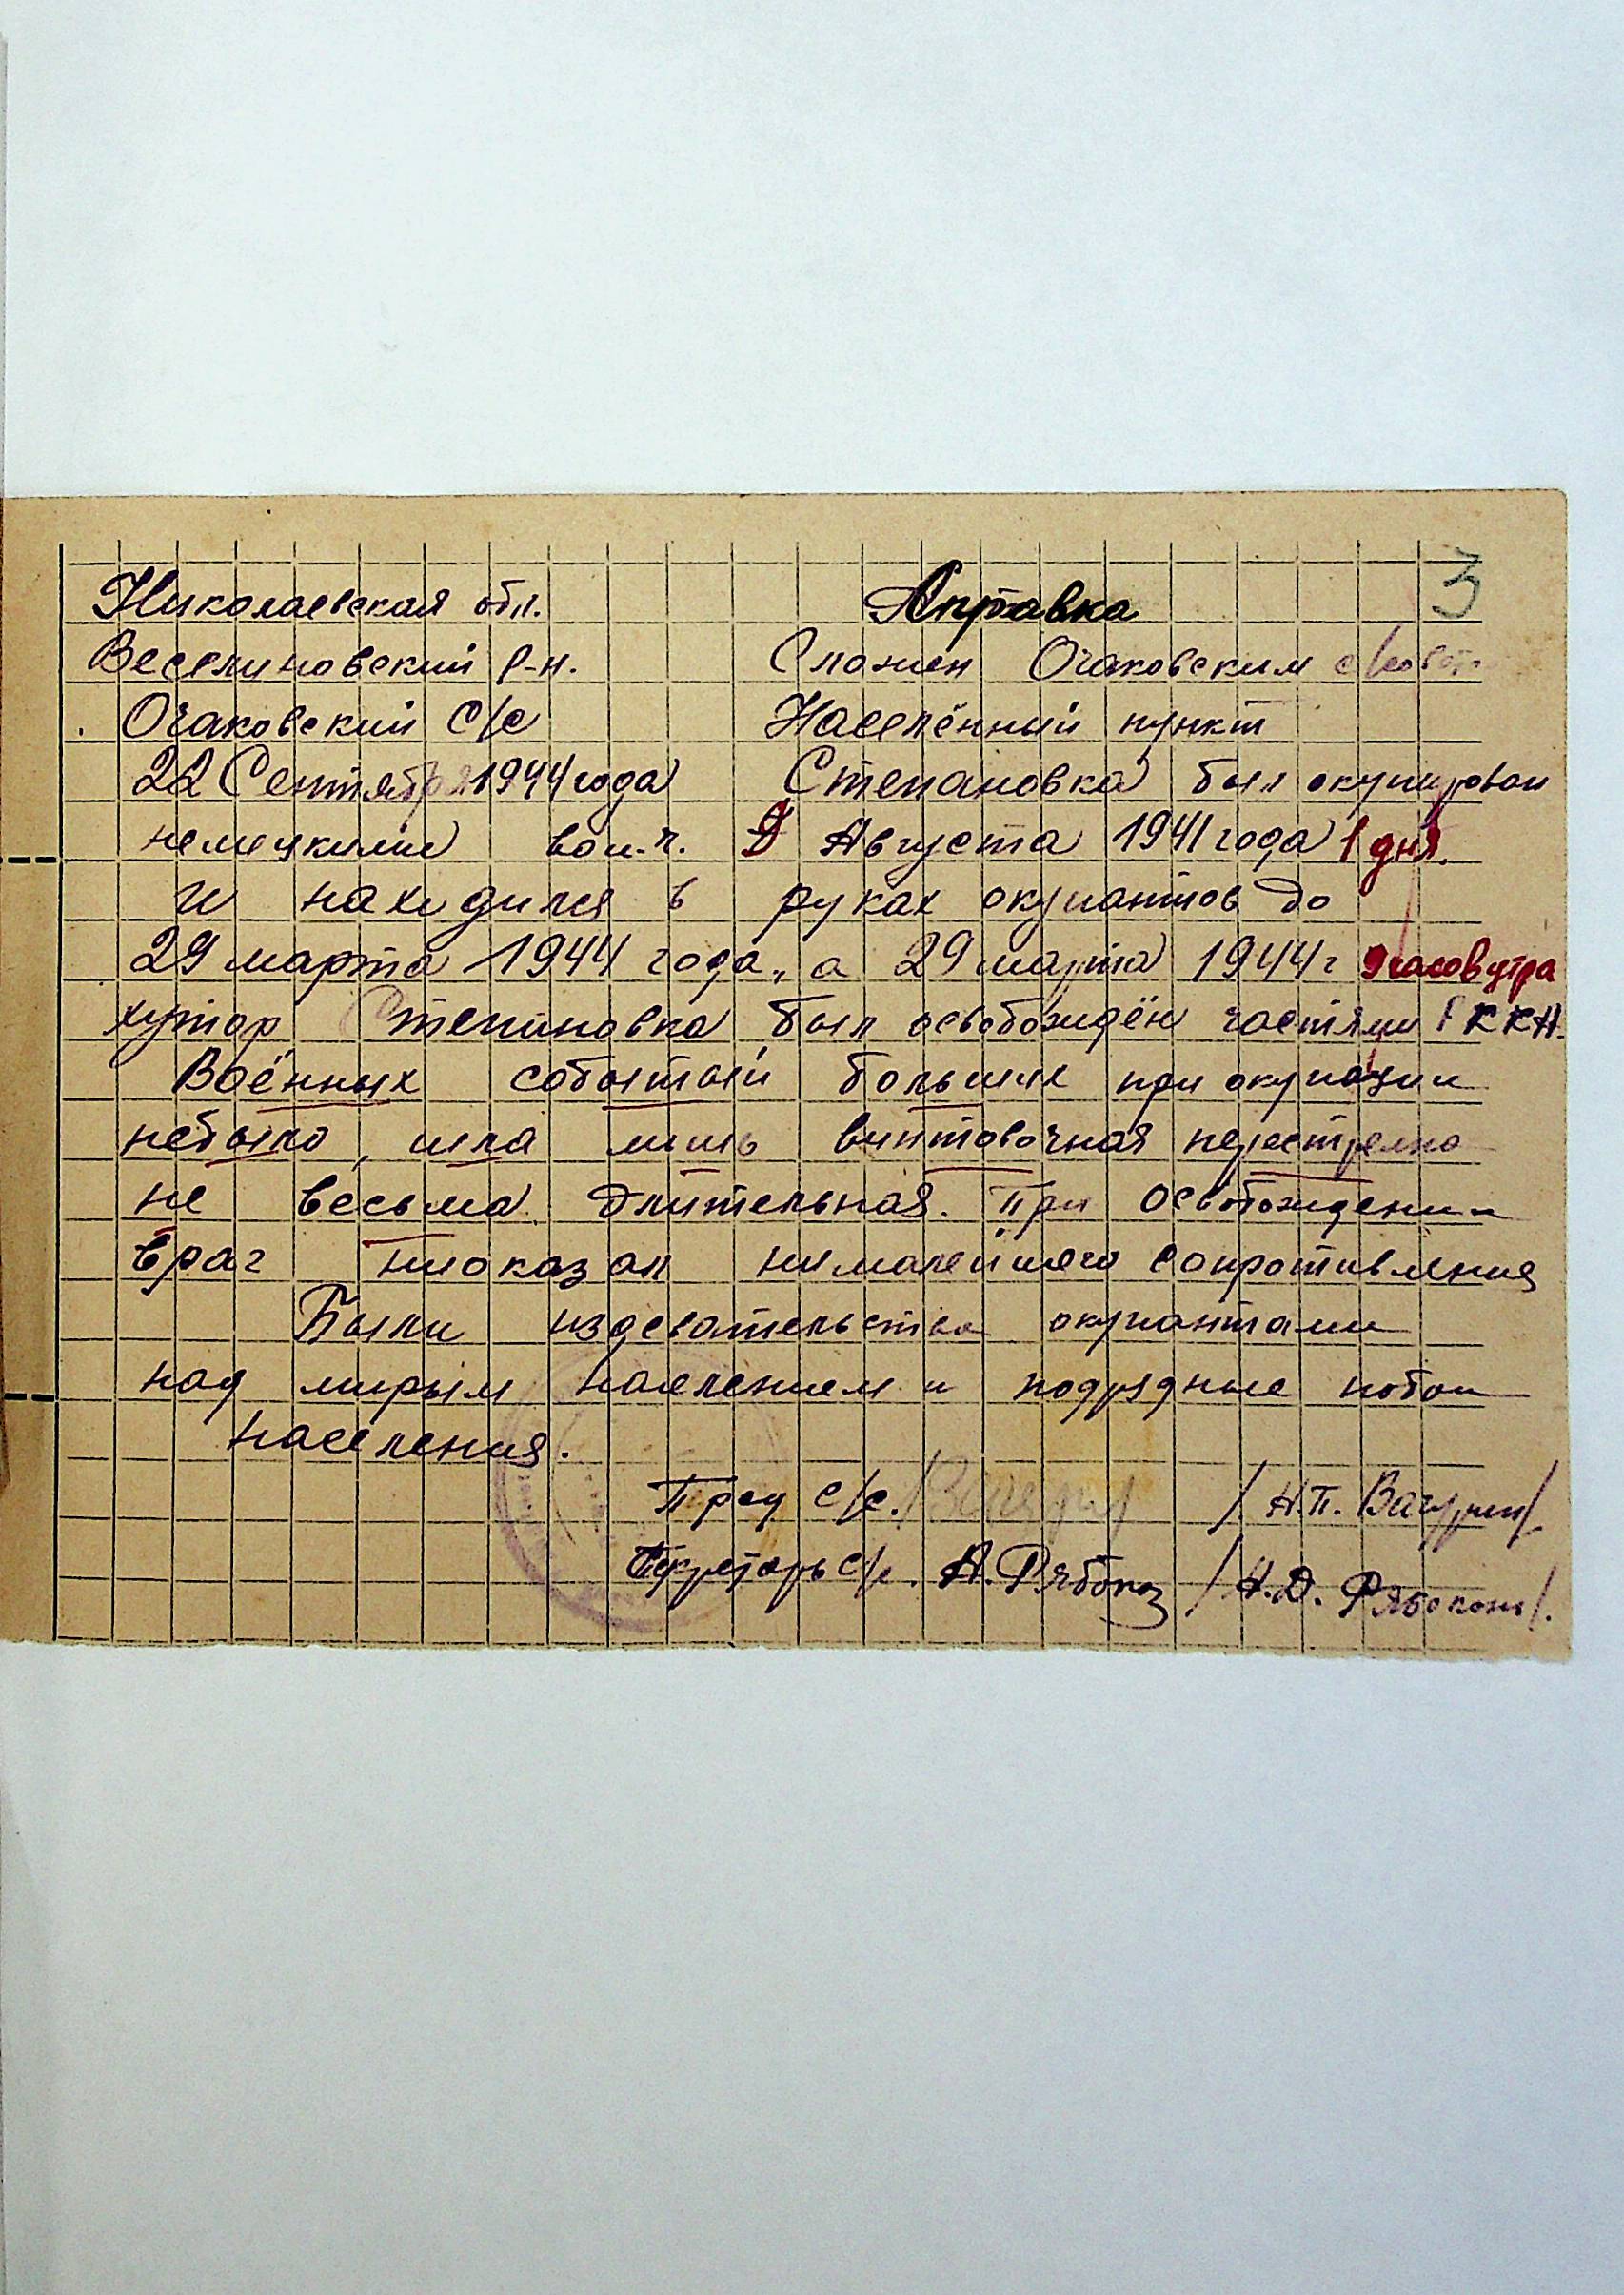 3
Николаевская обл.
Веселиновский р-н.
Очаковский с/с
22 Сентября 1944 года
Справка
Сложен Очаковским с/совет
Населённый пункт
Степановка был окупирован
немецкими вой.ч. 9 Августа 1941 года 1 дня.
и находился в руках окупантов до
29 марта 1944 года, а 29 марта 1944 г 9 часов утра
хутор Степановка был освобождён частями РККА.
Воённых событый больших при окупации
небыло, шла лишь винтовочная перестрелка
не весьма длительная. При освобождении
враг ниоказал нималейшего сопротивления
Были издевательства окупантами
над мирым населением и подрядные побои
населения.
Пред с/с. / Н.П. Вачурин/
Секретарь с/с. А. Рябокоз / А.Д. Рябоконь/.